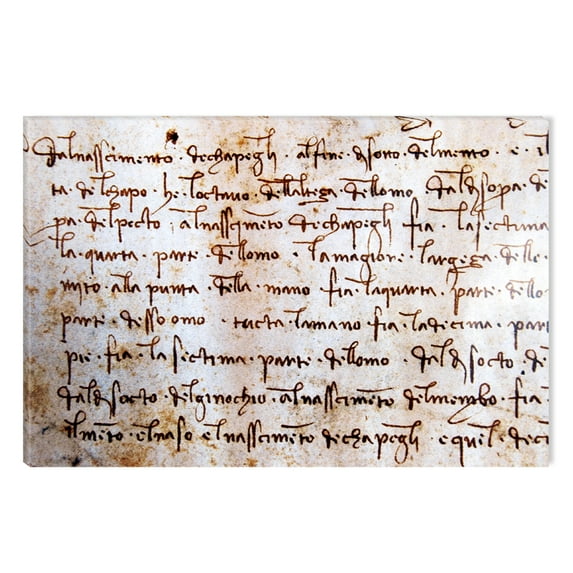 dalnasscimento · dechapegli · alfine · disoto · delmento · e · il
ta · delchapo · he · loctavo · dellalteza · dellomo · daldisopra · de
pa · delpecto · alnasscimēto · dechapegli fia · lasectima
la · quarta · parte · dellomo · lamagiore · largeza · delle
mito · alla punta · della · mano · fia · laquarta · parte · dello
parte · desso omo · tucta · lamano fia · ladecima · part
pie · fia · la sectima · parte · dellomo · daldisocto · de
daldisocto · delginochio · alnasscimēto · delmembro · fia ·
ilmēto · elnaso · elnasscimēto dechapegli · equel · deci